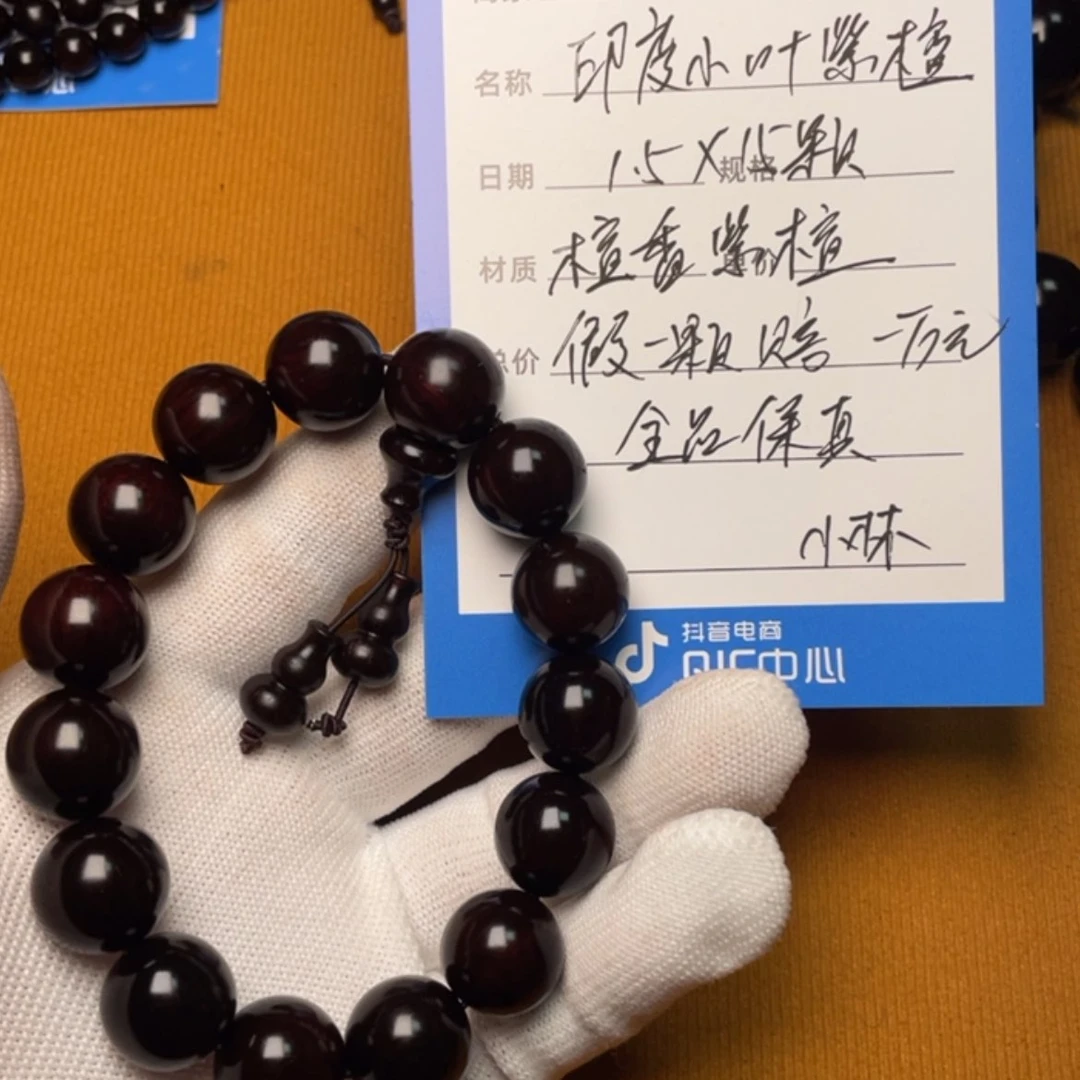 名称 印度小叶紫檀
日期 1.5X15颗 规格
材质 檀香紫檀
总价 假一颗赔一万元
全品保真
小林
抖音电商
QIC中心